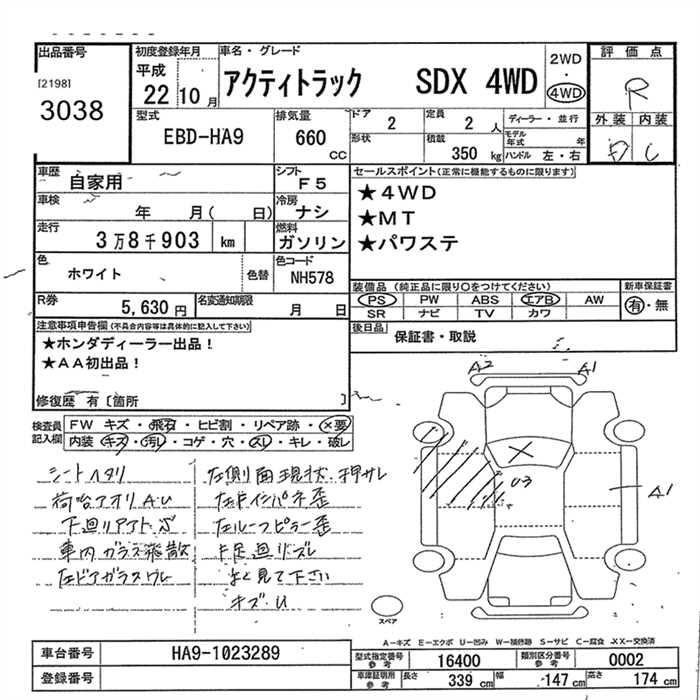 出品番号
[2198]
3038
初度登録年月
平成
22 10 月
車名・グレード
アクティトラック SDX 4WD
2WD
・
4WD
評価点
R
外装 内装
D C
型式
EBD-HA9
排気量
660
CC
ドア
2
定員
2 人
形状
積載
350 kg
ディーラー・並行
モデル
年式 年
ハンドル 左・右
車歴
自家用
シフト
F5
車検
年 月( 日)
冷房
ナシ
走行
3万8千903 km
燃料
ガソリン
色
ホワイト
色替
色コード
NH578
R券
5,630 円
名変通知期限
月 日
セールスポイント(正常に機能するものに限ります)
★4WD
★MT
★パワステ
装備品(純正品に限り○をつけてください)
新車保証書
PS PW ABS エアB AW
SR ナビ TV カワ
有・無
後日品
保証書・取説
注意事項申告欄(不具合内容等は具体的に記入して下さい)
★ホンダディーラー出品!
★AA初出品!
修復歴 有〔箇所 〕
検査員
記入欄
FW キズ・飛石・ヒビ割・リペア跡・×要
内装 キズ・汚レ・コゲ・穴・スレ・キレ・破レ
シートヘタリ
荷台アオリA.U
下廻リアフト.S
車内ガラス飛散
左ドアガラスワレ
左側面現状.押サレ
左ルーフピラー歪
よく見て下さい
キズ.U
A2
A1
U3
A1
スペア
A-キズ E-エクボ U-凹み W-補修跡 S-サビ C-腐食 XX-交換済
車台番号
HA9-1023289
登録番号
型式指定番号
参考
16400
類別区分番号
参考
0002
車庫証明用
参考
長さ
339 cm
幅
147 cm
高さ
174 cm